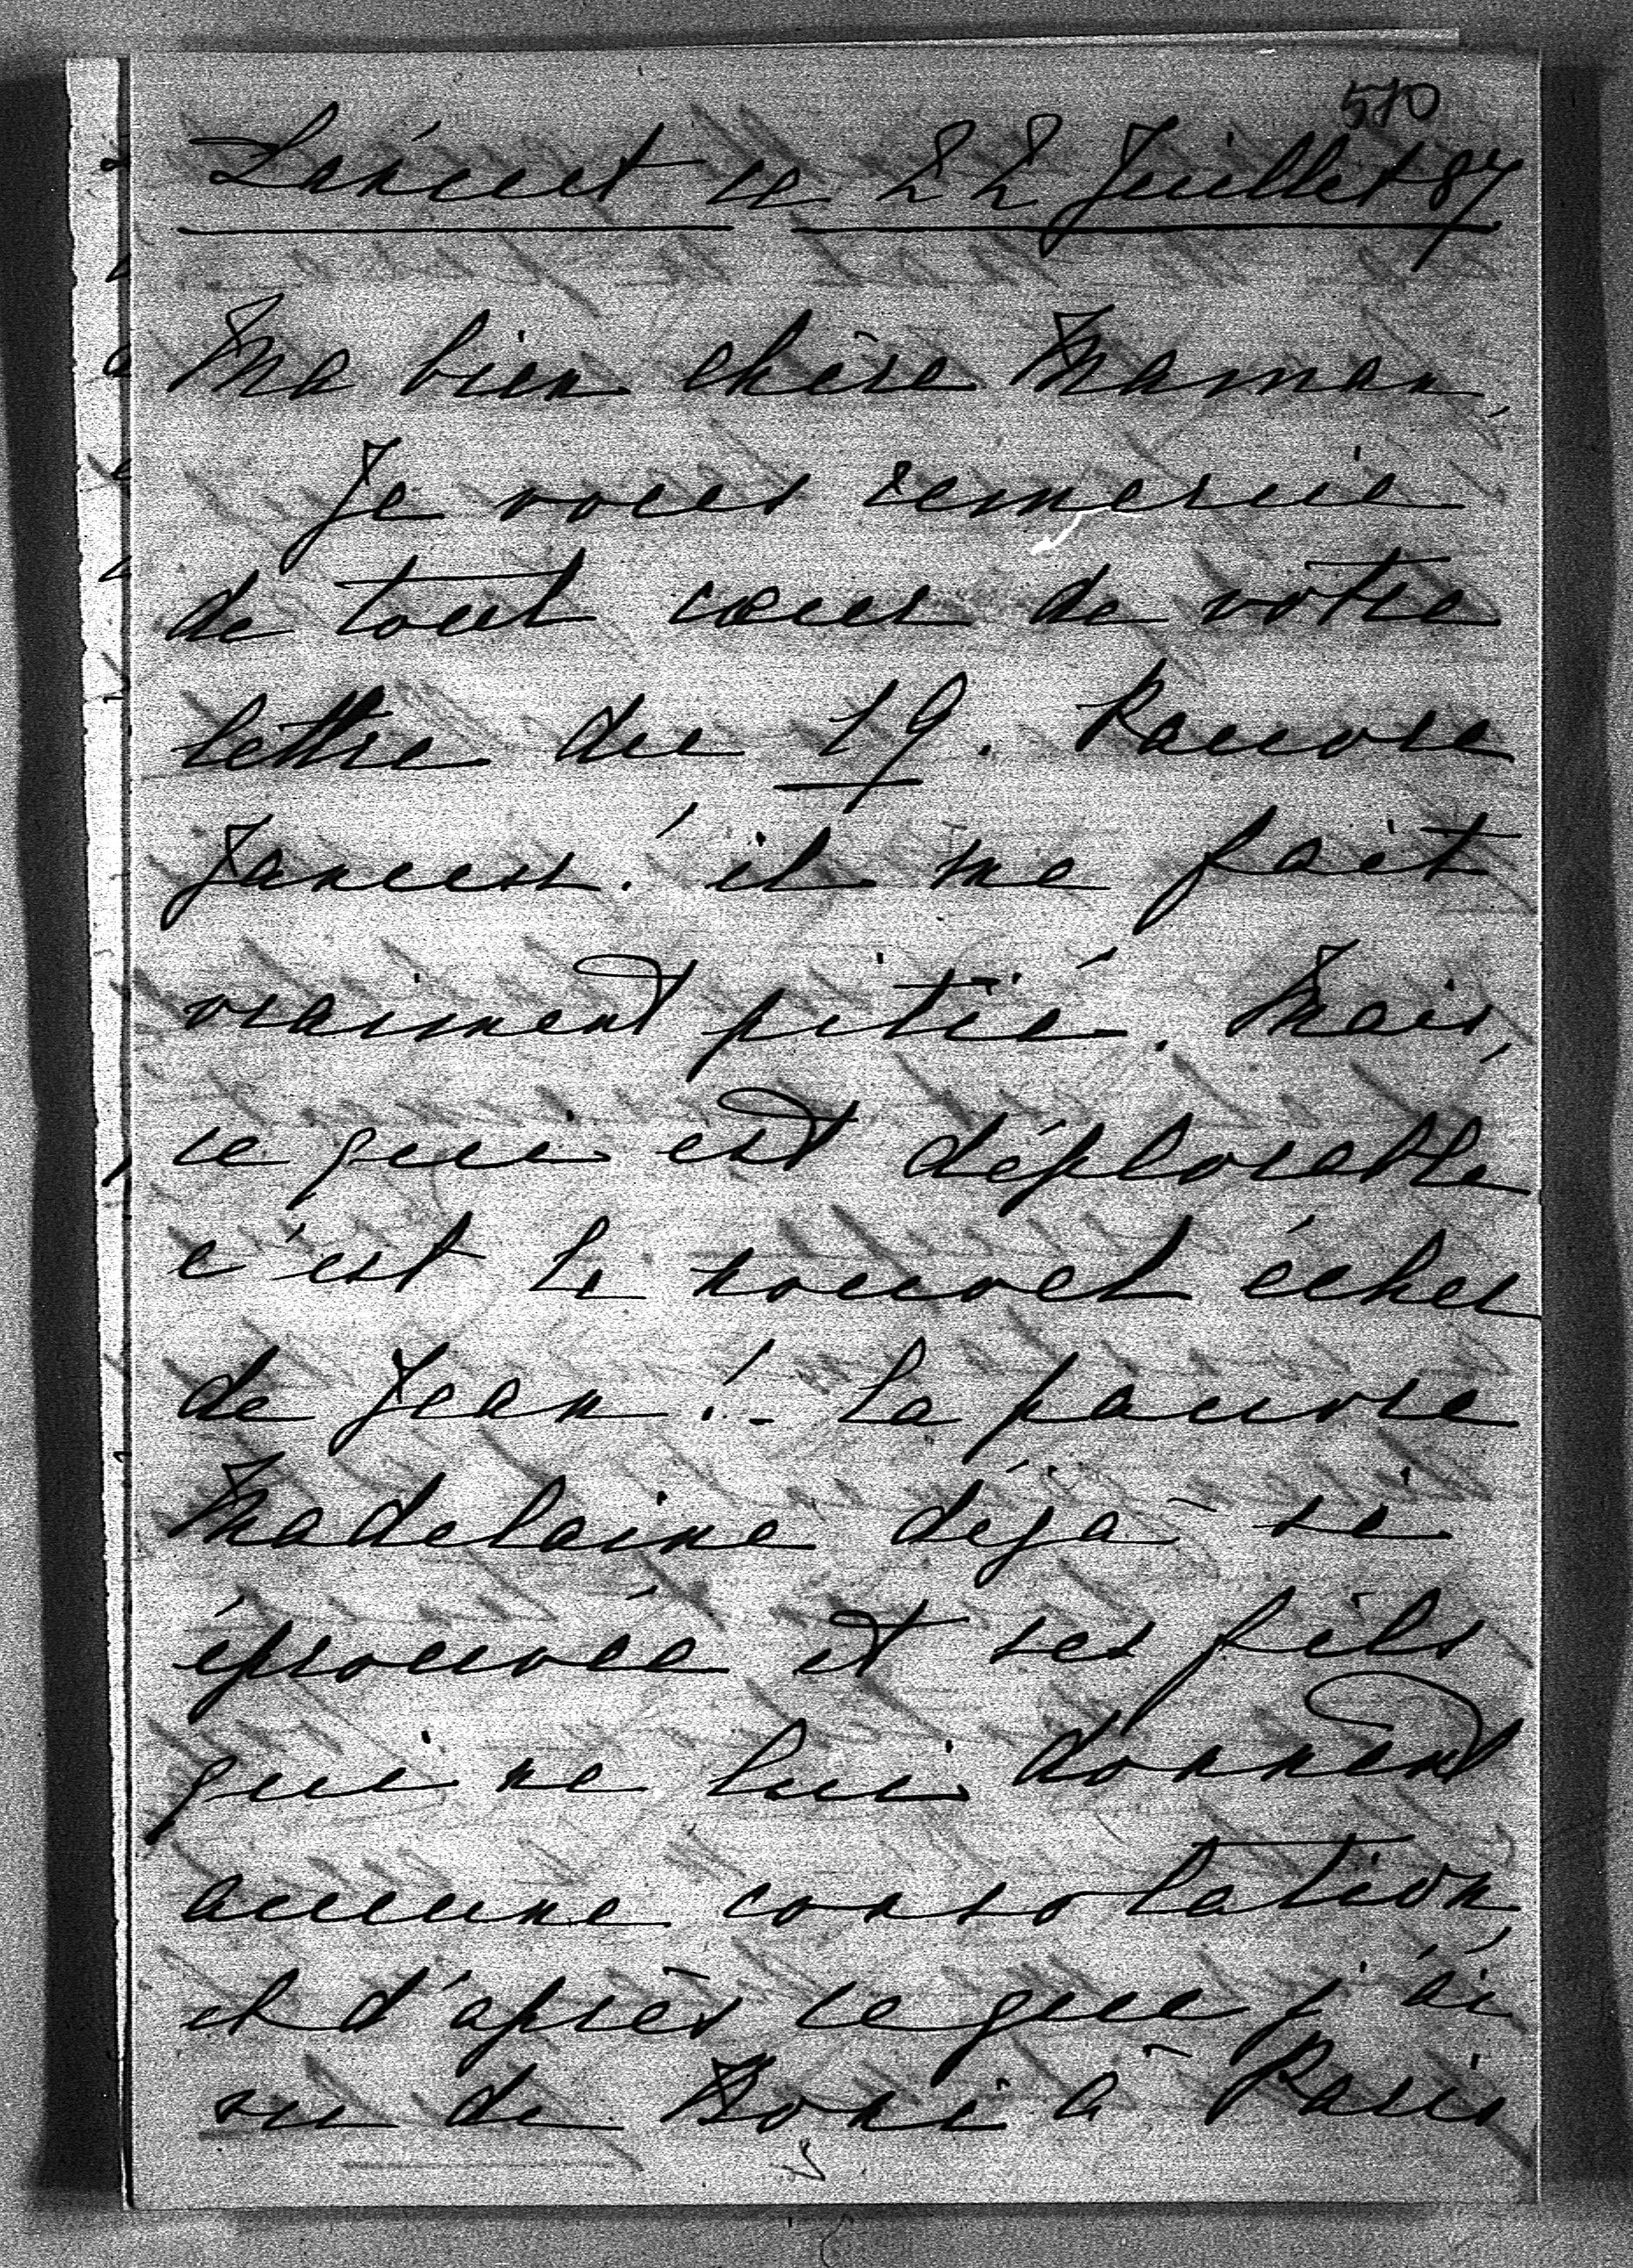 510
Lancut ce 22 Juillet 87
Ma bien chère Maman,
Je vous remercie
de tout cœur de votre
lettre du 19. Pauvre
il me fait
vraiment pitié. Mais,
ce qui est déplorable
c'est le nouvel échec
de Jean! La pauvre
Madelaine déjà si
éprouvée et ses fils
qui ne lui donnent
aucune consolation,
et d'après ce que j'ai
vu de Boni à Paris